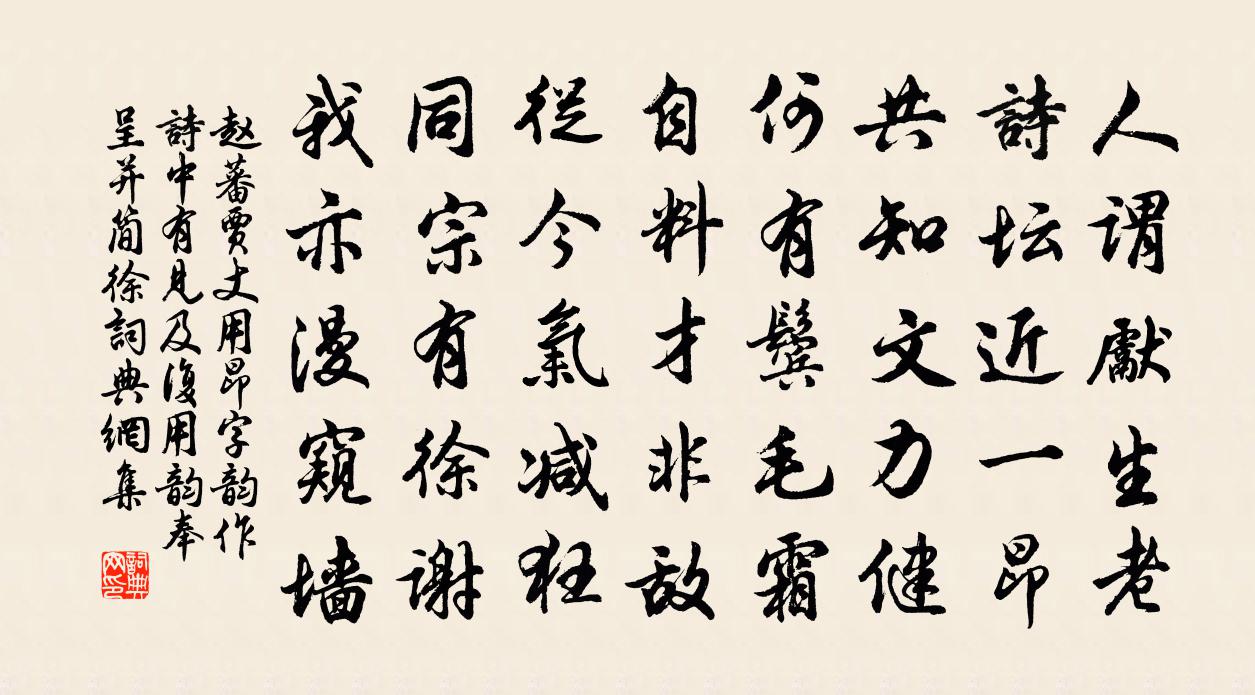 人谓獻生老
詩坛近一昂
共知文力健
何有鬓毛霜
自料才非敌
從今氣减狂
同宗有徐谢
我亦漫窺墙
赵蕃贾丈用昂字韵作
詩中有見及復用韵奉
呈并简徐詞典網集
詞典网印